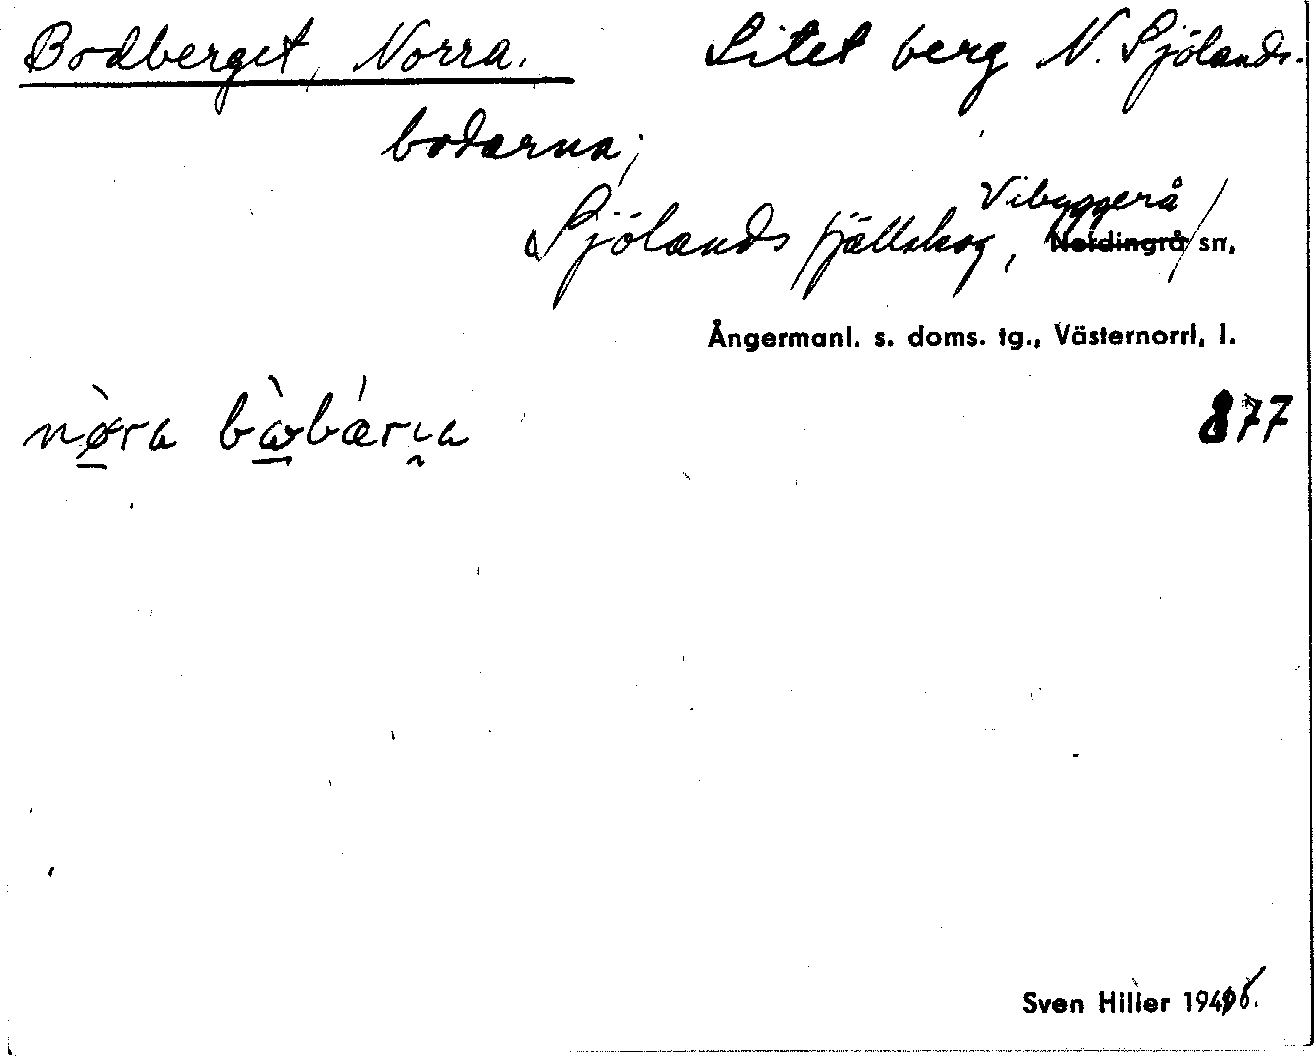 Bodberget, Norra. Litet berg N. Sjölands-
bodarna;
Vibyggerå
Sjölands fjällskog, Nordingrå sn,
Ångermanl. s. doms. tg., Västernorrl. l.
877
Sven Hiller 1946.